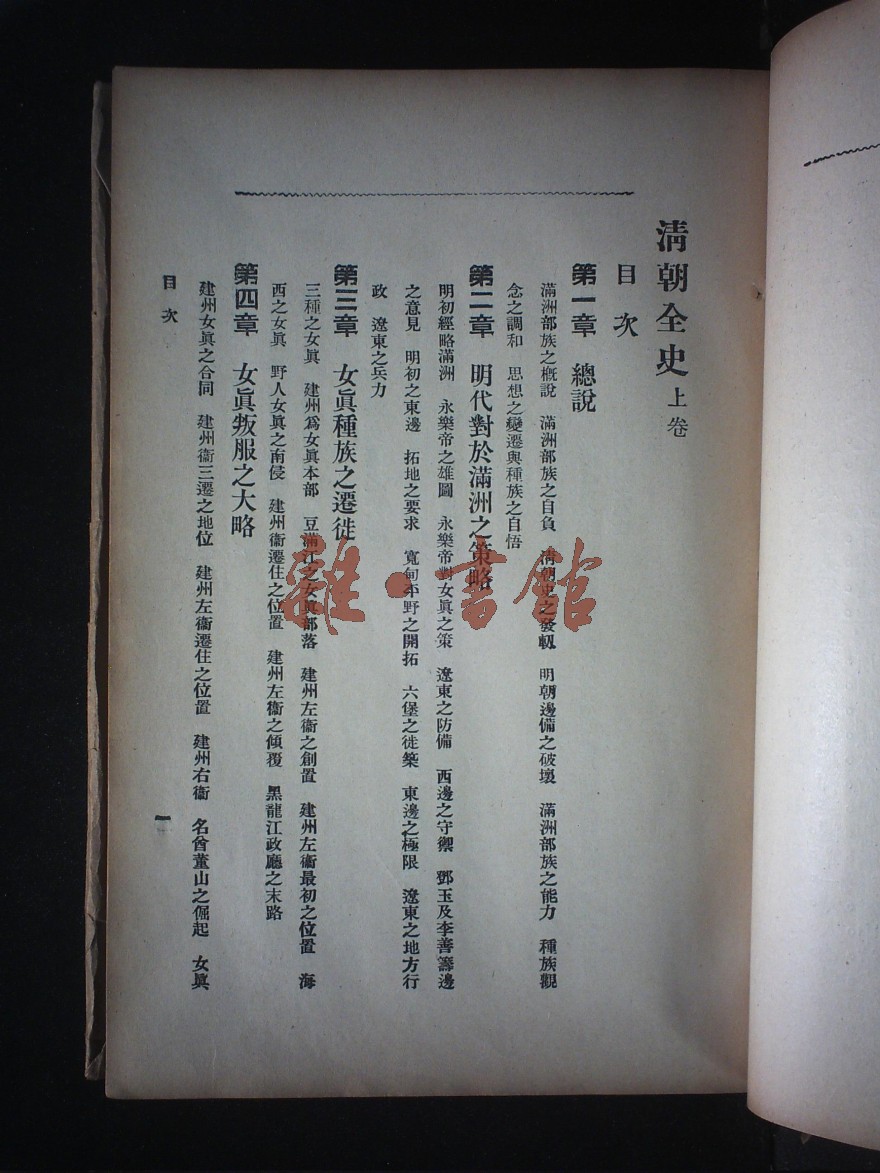 清朝全史 上卷
目次
第一章　總說
滿洲部族之槪說　滿洲部族之自負　淸朝史之發軔　明朝邊備之破壞　滿洲部族之能力　種族觀
念之調和　思想之變遷與種族之自悟
第二章　明代對於滿洲之策略
明初經略滿洲　永樂帝之雄圖　永樂帝對女眞之策　遼東之防備　西邊之守禦　鄧玉及李善籌邊
之意見　明初之東邊　拓地之要求　寬甸平野之開拓　六堡之徙築　東邊之極限　遼東之地方行
政　遼東之兵力
第三章　女眞種族之遷徙
三種之女眞　建州爲女眞本部　豆滿江之女眞部落　建州左衞之創置　建州左衞最初之位置　海
西之女眞　野人女眞之南侵　建州衞遷住之位置　建州左衞之傾覆　黑龍江政廳之末路
第四章　女眞叛服之大略
建州女眞之合同　建州衞三遷之地位　建州左衞遷住之位置　建州右衞　名酋董山之倔起　女眞
目次
一
雜·書館